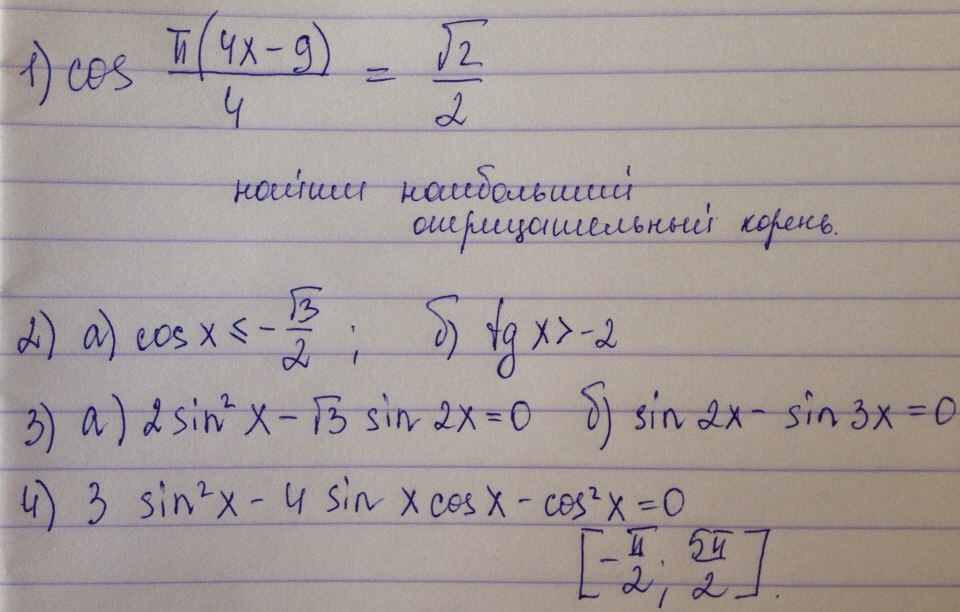 1) cos π(4x-9)/4 = √2/2
найти наибольший
отрицательный корень.
2) а) cos x ≤ -√3/2 ; б) tg x > -2
3) а) 2 sin² x - √3 sin 2x = 0 б) sin 2x - sin 3x = 0
4) 3 sin² x - 4 sin x cos x - cos² x = 0
[-π/2; 5π/2].